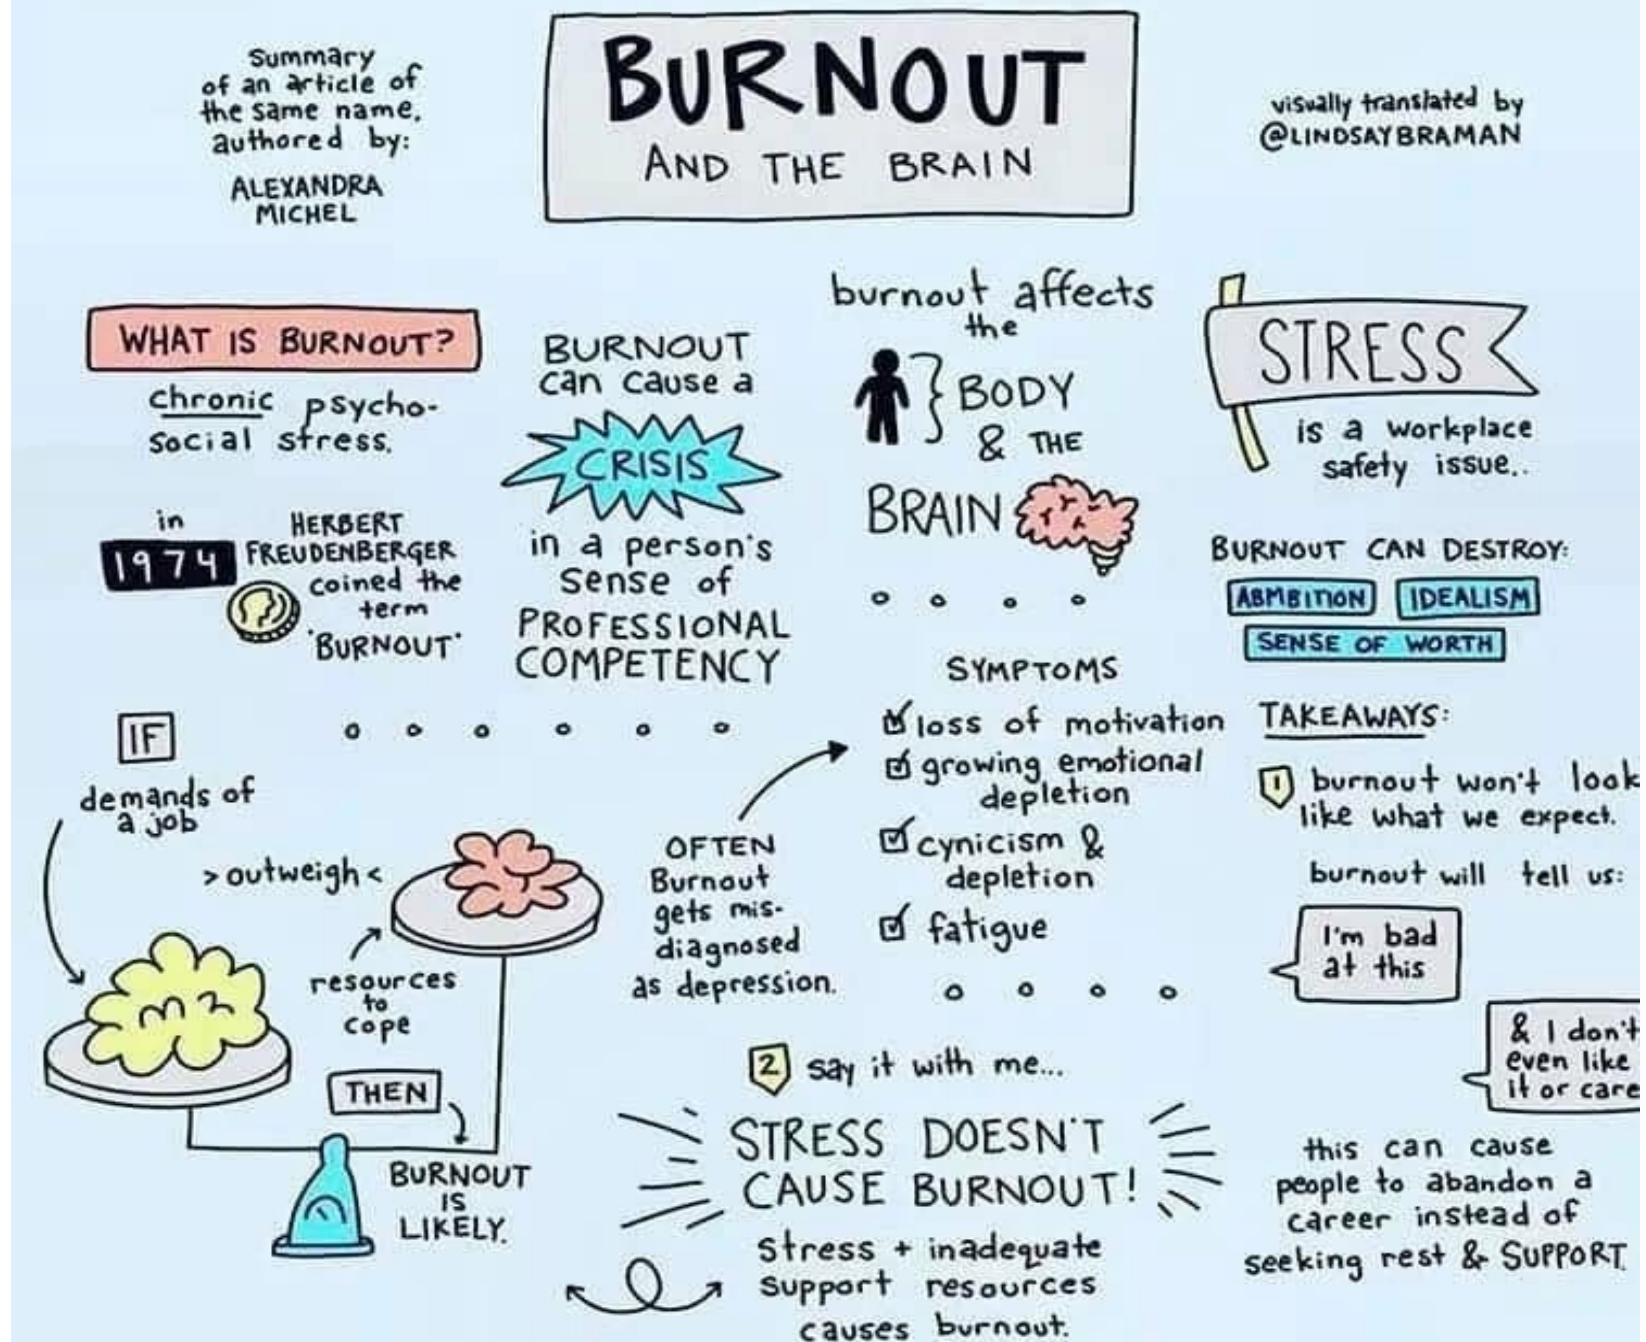 Summary
of an article of
the same name,
authored by:
ALEXANDRA
MICHEL
BURNOUT
AND THE BRAIN
visually translated by
@LINDSAYBRAMAN
WHAT IS BURNOUT?
chronic psycho-
social stress.
in
1974
HERBERT
FREUDENBERGER
coined the
term
'BURNOUT'
BURNOUT
can cause a
CRISIS
in a person's
sense of
PROFESSIONAL
COMPETENCY
burnout affects
the
BODY
& THE
BRAIN
STRESS
is a workplace
safety issue..
BURNOUT CAN DESTROY:
ABMBITION
IDEALISM
SENSE OF WORTH
IF
demands of
a job
> outweigh <
resources
to
cope
THEN
BURNOUT
IS
LIKELY.
OFTEN
Burnout
gets mis-
diagnosed
as depression.
SYMPTOMS
loss of motivation
growing emotional
depletion
cynicism &
depletion
fatigue
TAKEAWAYS:
1 burnout won't look
like what we expect.
burnout will tell us:
I'm bad
at this
& I don't
even like
it or care
this can cause
people to abandon a
career instead of
seeking rest & SUPPORT.
2 say it with me...
STRESS DOESN'T
CAUSE BURNOUT!
stress + inadequate
support resources
causes burnout.